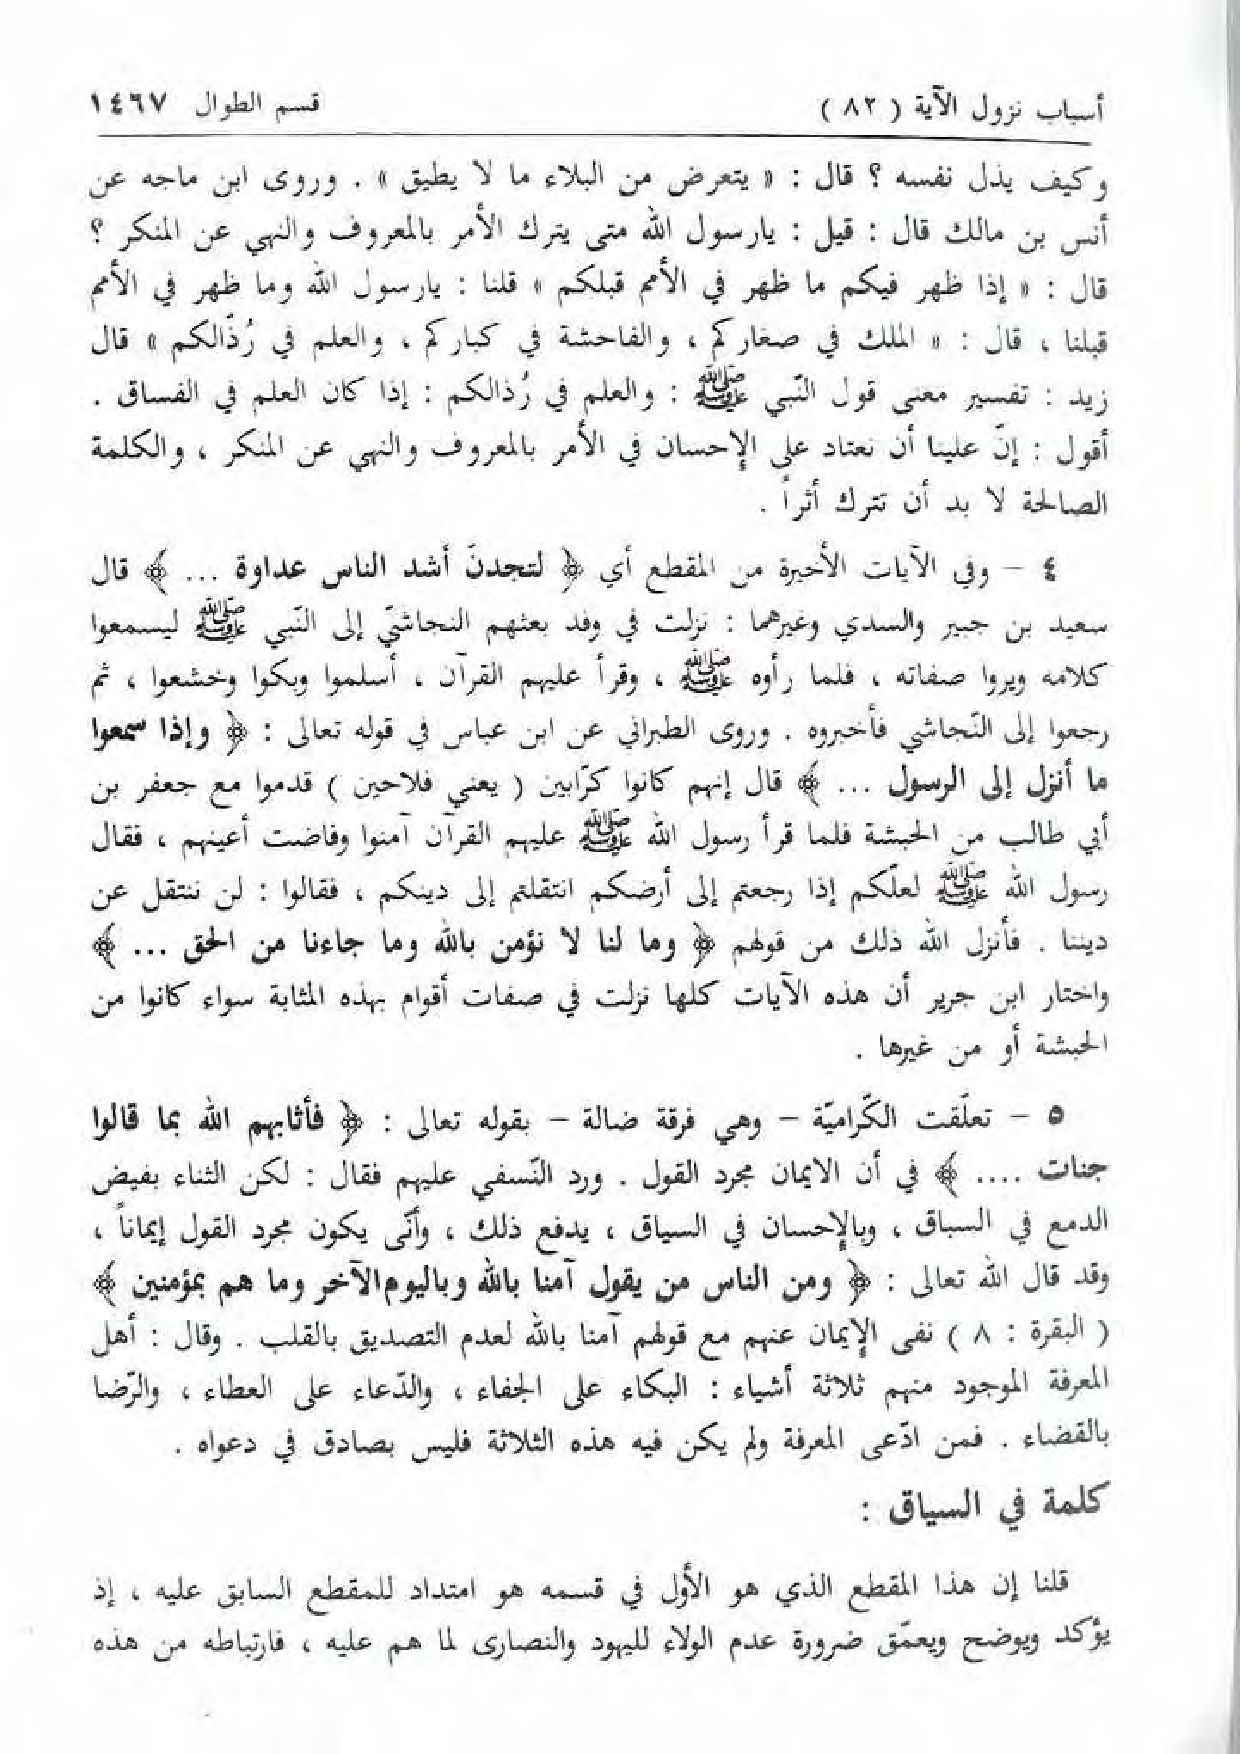 أسباب نزول الآية ( ٨٢ ) قسم الطوال ١٤٦٧
وكيف يذل نفسه ؟ قال : « يتعرض من البلاء ما لا يطيق » . وروى ابن ماجه عن
أنس بن مالك قال : قيل : يارسول الله متى يترك الأمر بالمعروف والنهي عن المنكر ؟
قال : « إذا ظهر فيكم ما ظهر في الأمم قبلكم » قلنا : يارسول الله وما ظهر في الأمم
قبلنا ، قال : « الملك في صغاركم ، والفاحشة في كباركم ، والعلم في رُذّالكم » قال
زيد : تفسير معنى قول النّبي ﷺ : والعلم في رُذالكم : إذا كان العلم في الفساق .
أقول : إنّ علينا أن نعتاد على الإحسان في الأمر بالمعروف والنهي عن المنكر ، والكلمة
الصالحة لا بد أن تترك أثراً .
٤ – وفي الآيات الأخيرة من المقطع أي ﴿ لتجدنّ أشد الناس عداوة ... ﴾ قال
سعيد بن جبير والسدي وغيرهما : نزلت في وفد بعثهم النجاشيّ إلى النّبي ﷺ ليسمعوا
كلامه ويروا صفاته ، فلما رأوه ﷺ ، وقرأ عليهم القرآن ، أسلموا وبكوا وخشعوا ، ثم
رجعوا إلى النّجاشي فأخبروه . وروى الطبراني عن ابن عباس في قوله تعالى : ﴿ وإذا سمعوا
ما أنزل إلى الرسول ... ﴾ قال إنهم كانوا كرّابين ( يعني فلاحين ) قدموا مع جعفر بن
أبي طالب من الحبشة فلما قرأ رسول الله ﷺ عليهم القرآن آمنوا وفاضت أعينهم ، فقال
رسول الله ﷺ لعلّكم إذا رجعتم إلى أرضكم انتقلتم إلى دينكم ، فقالوا : لن ننتقل عن
ديننا . فأنزل الله ذلك من قولهم ﴿ وما لنا لا نؤمن بالله وما جاءنا من الحق ... ﴾
واختار ابن جرير أن هذه الآيات كلها نزلت في صفات أقوام بهذه المثابة سواء كانوا من
الحبشة أو من غيرها .
٥ – تعلّقت الكّراميّة – وهي فرقة ضالة – بقوله تعالى : ﴿ فأثابهم الله بما قالوا
جنات .... ﴾ في أن الايمان مجرد القول . ورد النّسفي عليهم فقال : لكن الثناء بفيض
الدمع في السباق ، وبالإحسان في السياق ، يدفع ذلك ، وأنّى يكون مجرد القول إيماناً ،
وقد قال الله تعالى : ﴿ ومن الناس من يقول آمنا بالله وباليوم الآخر وما هم بمؤمنين ﴾
( البقرة : ٨ ) نفى الإيمان عنهم مع قولهم آمنا بالله لعدم التصديق بالقلب . وقال : أهل
المعرفة الموجود منهم ثلاثة أشياء : البكاء على الجفاء ، والدّعاء على العطاء ، والرّضا
بالقضاء . فمن ادّعى المعرفة ولم يكن فيه هذه الثلاثة فليس بصادق في دعواه .
كلمة في السياق :
قلنا إن هذا المقطع الذي هو الأول في قسمه هو امتداد للمقطع السابق عليه ، إذ
يؤكد ويوضح ويعمّق ضرورة عدم الولاء لليهود والنصارى لما هم عليه ، فارتباطه من هذه